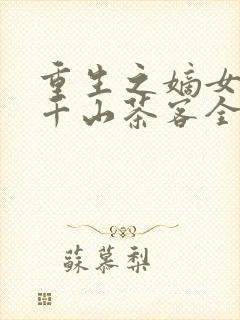 重生之嫡女
千山茶客全
蘇慕梨